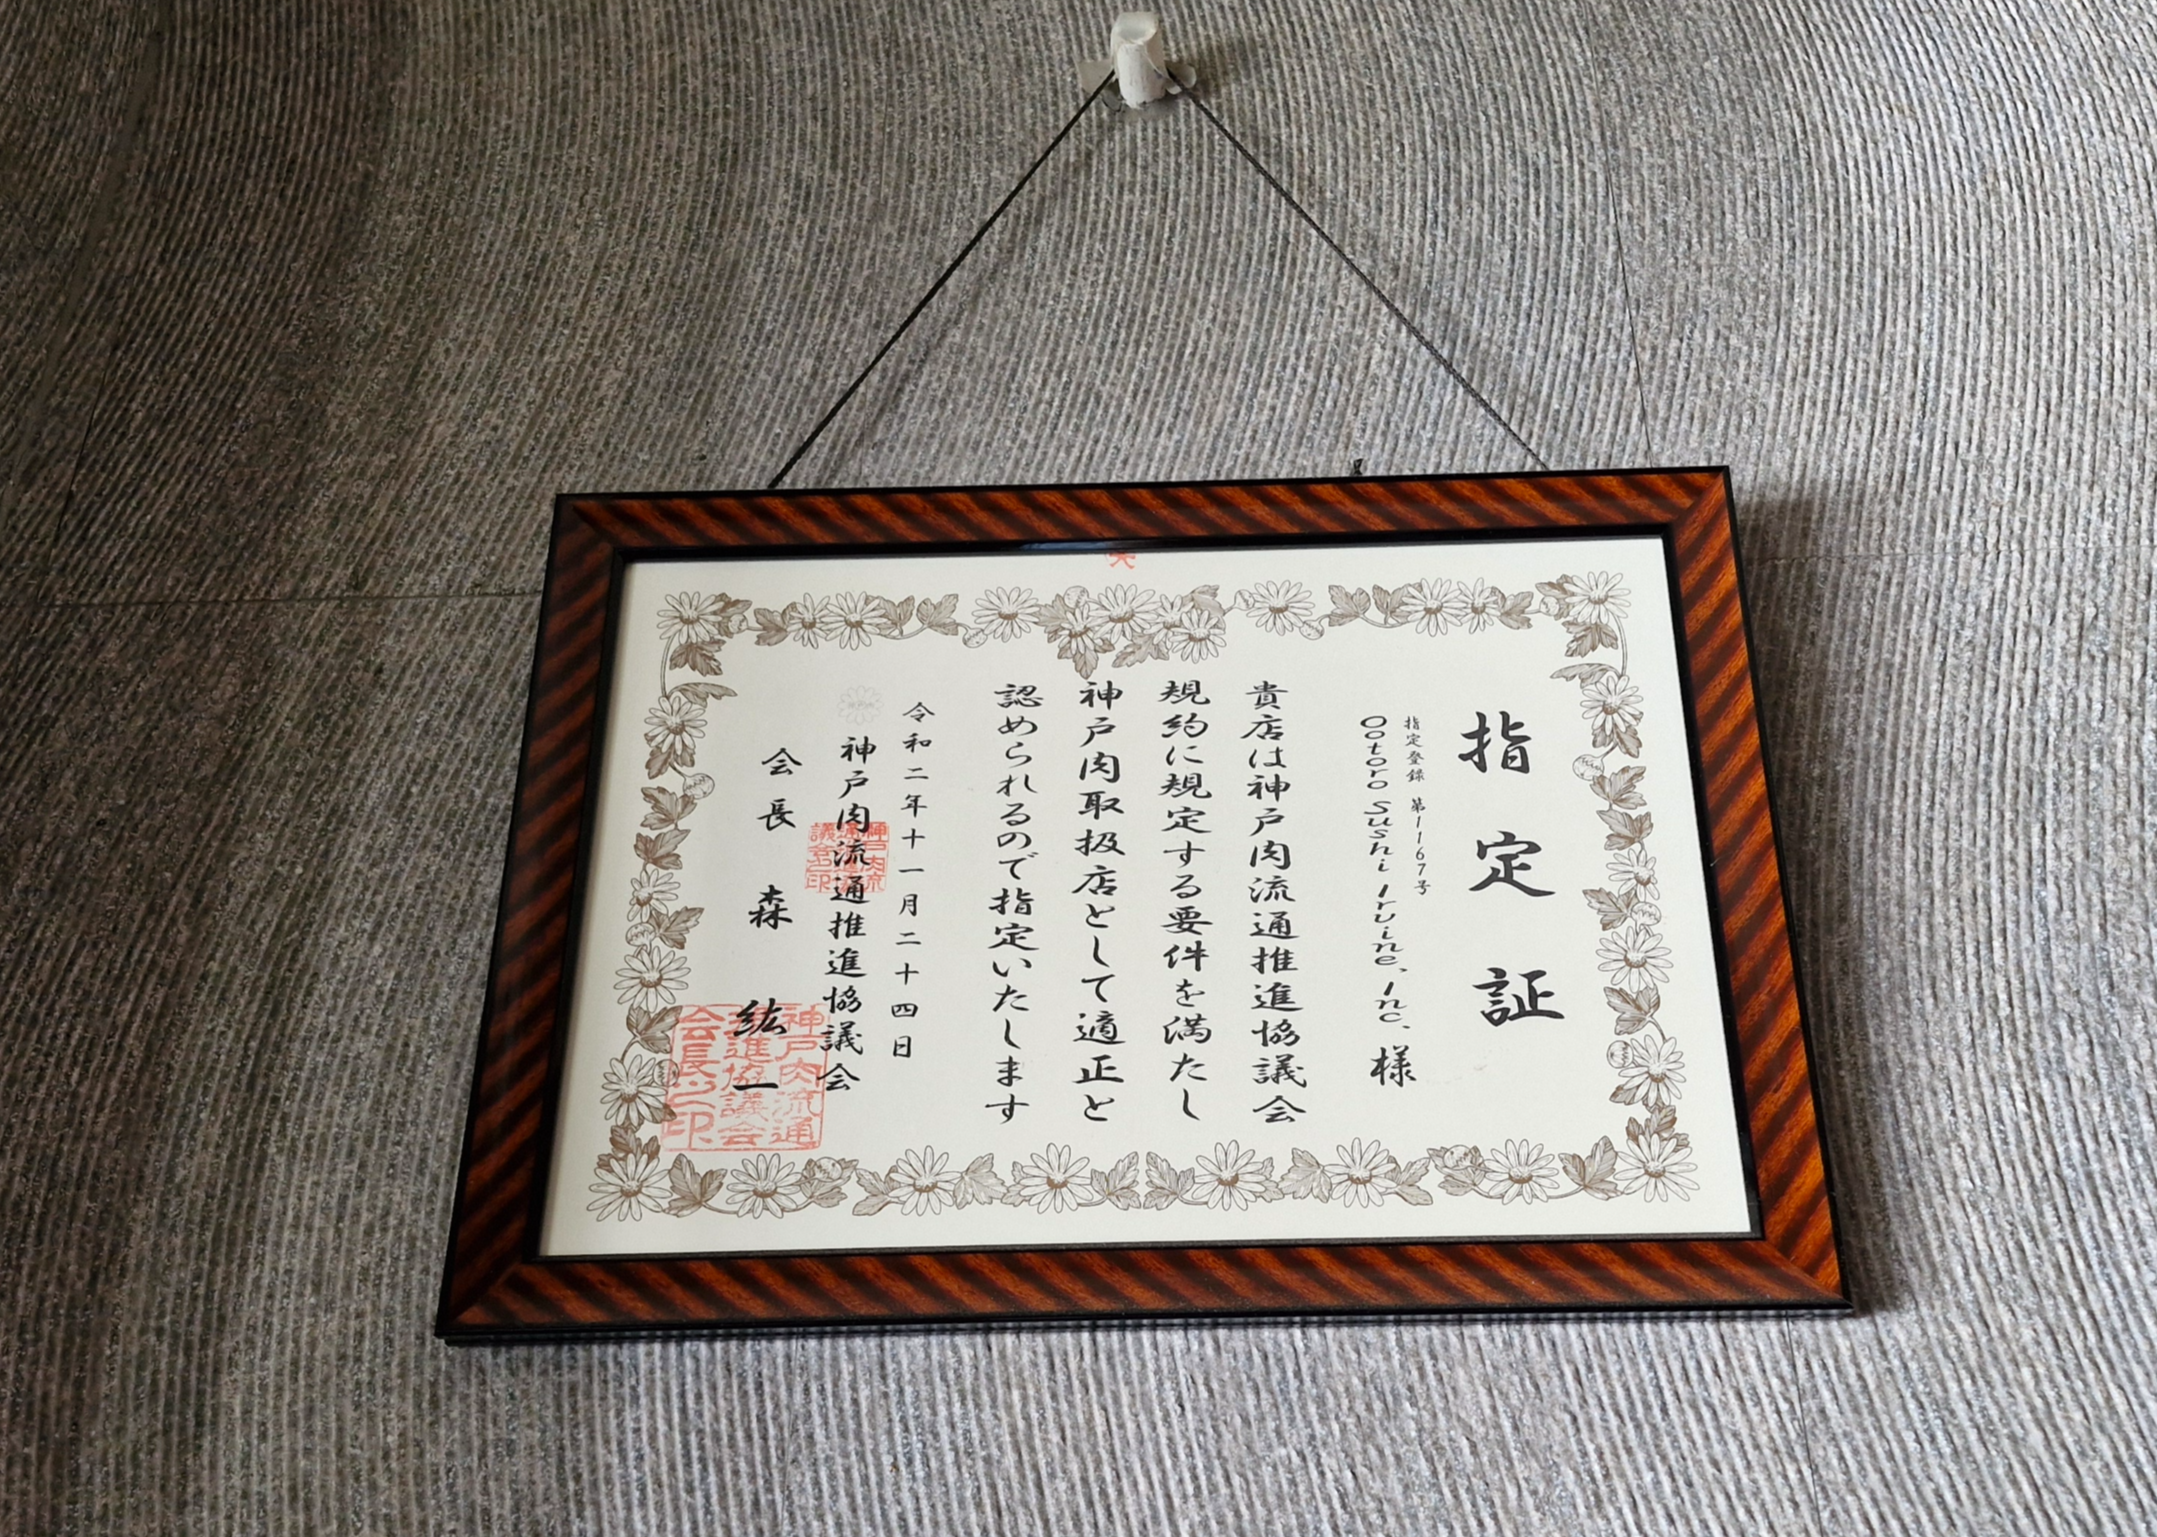 指定証
指定登録 第1167号
Ootoro Sushi Irvine, Inc. 様
貴店は神戸肉流通推進協議会
規約に規定する要件を満たし
神戸肉取扱店として適正と
認められるので指定いたします
令和二年十一月二十四日
神戸肉流通推進協議会
会長 森 紘一
神戸肉流通推進協議会会長之印